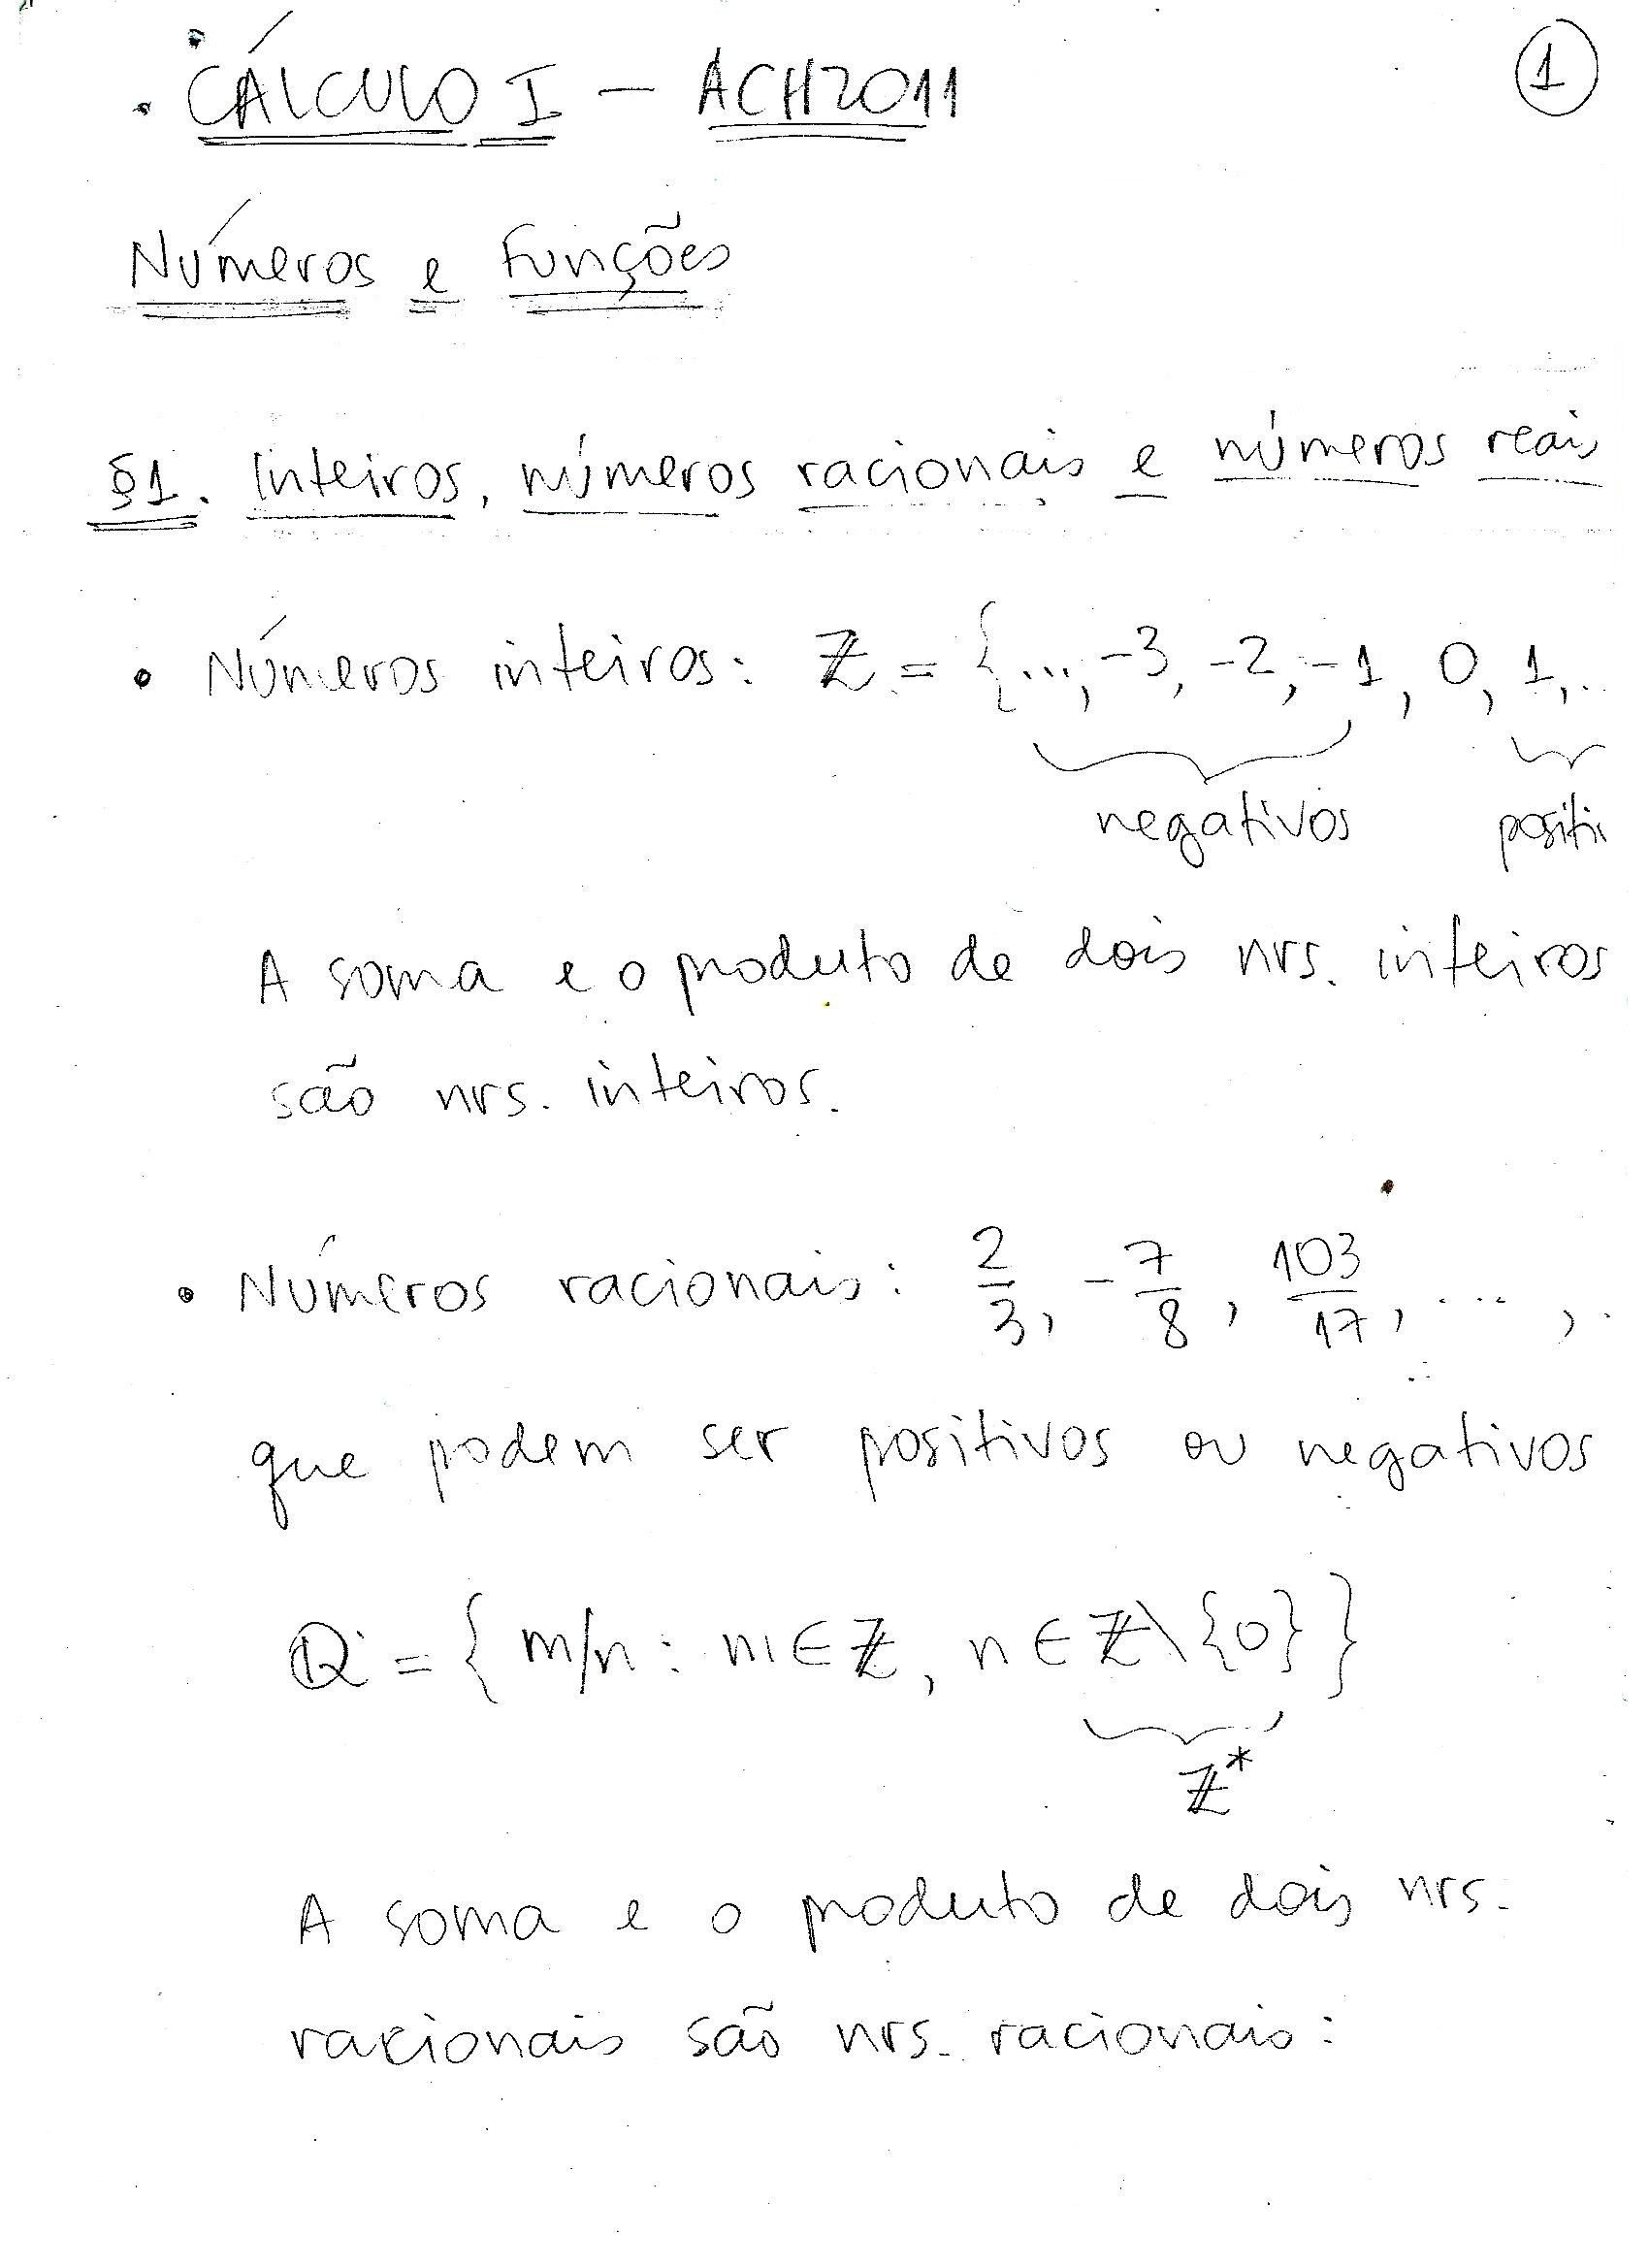 CÁLCULO I – ACH2011
1
Números e Funções
§1. Inteiros, números racionais e números reais
• Números inteiros: ℤ = {..., -3, -2, -1, 0, 1, ..
negativos positi
A soma e o produto de dois nrs. inteiros
são nrs. inteiros.
• Números racionais: 2/3, -7/8, 103/17, ... ,
que podem ser positivos ou negativos
ℚ = { m/n : m ∈ ℤ, n ∈ ℤ\{0} }
ℤ*
A soma e o produto de dois nrs.
racionais são nrs. racionais: